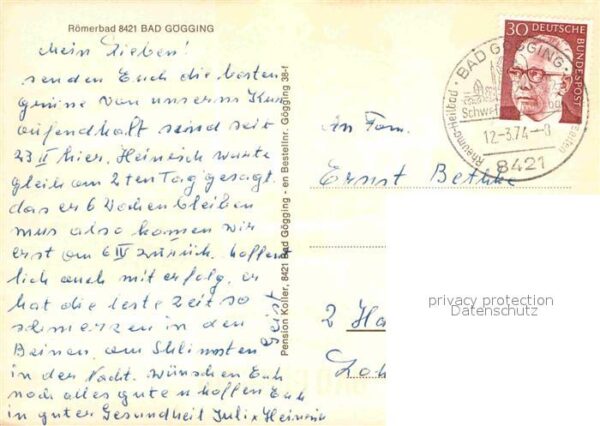 Römerbad 8421 BAD GÖGGING
Mein Lieben!
senden Euch die besten
grüsse von unserm Kur
aufendhalt send seit
23 II hier, Heinrich wurte
gleich am 2ten Tag gesagt.
das er 6 Wochen bleiben
mus also komen wir
erst am 6 IV zurück. hoffent
lich auch mit erfolg, er
hat die leste Zeit so
schmerzen in den
Beinen, am Shlimsten
in der Nacht. Wünschen Euh
noch alles guten hoffen Euh
in guter Gesundheit Juli x Heinrich
Pension Koller, 8421 Bad Gögging - en Bestellnr. Gögging 38-f
30 DEUTSCHE BUNDESPOST
BAD GÖGGING
Rheuma-Heilbad
12-3.74-8
8421
An Fam.
Ernst Bethke
2 Ha
Loh
privacy protection
Datenschutz